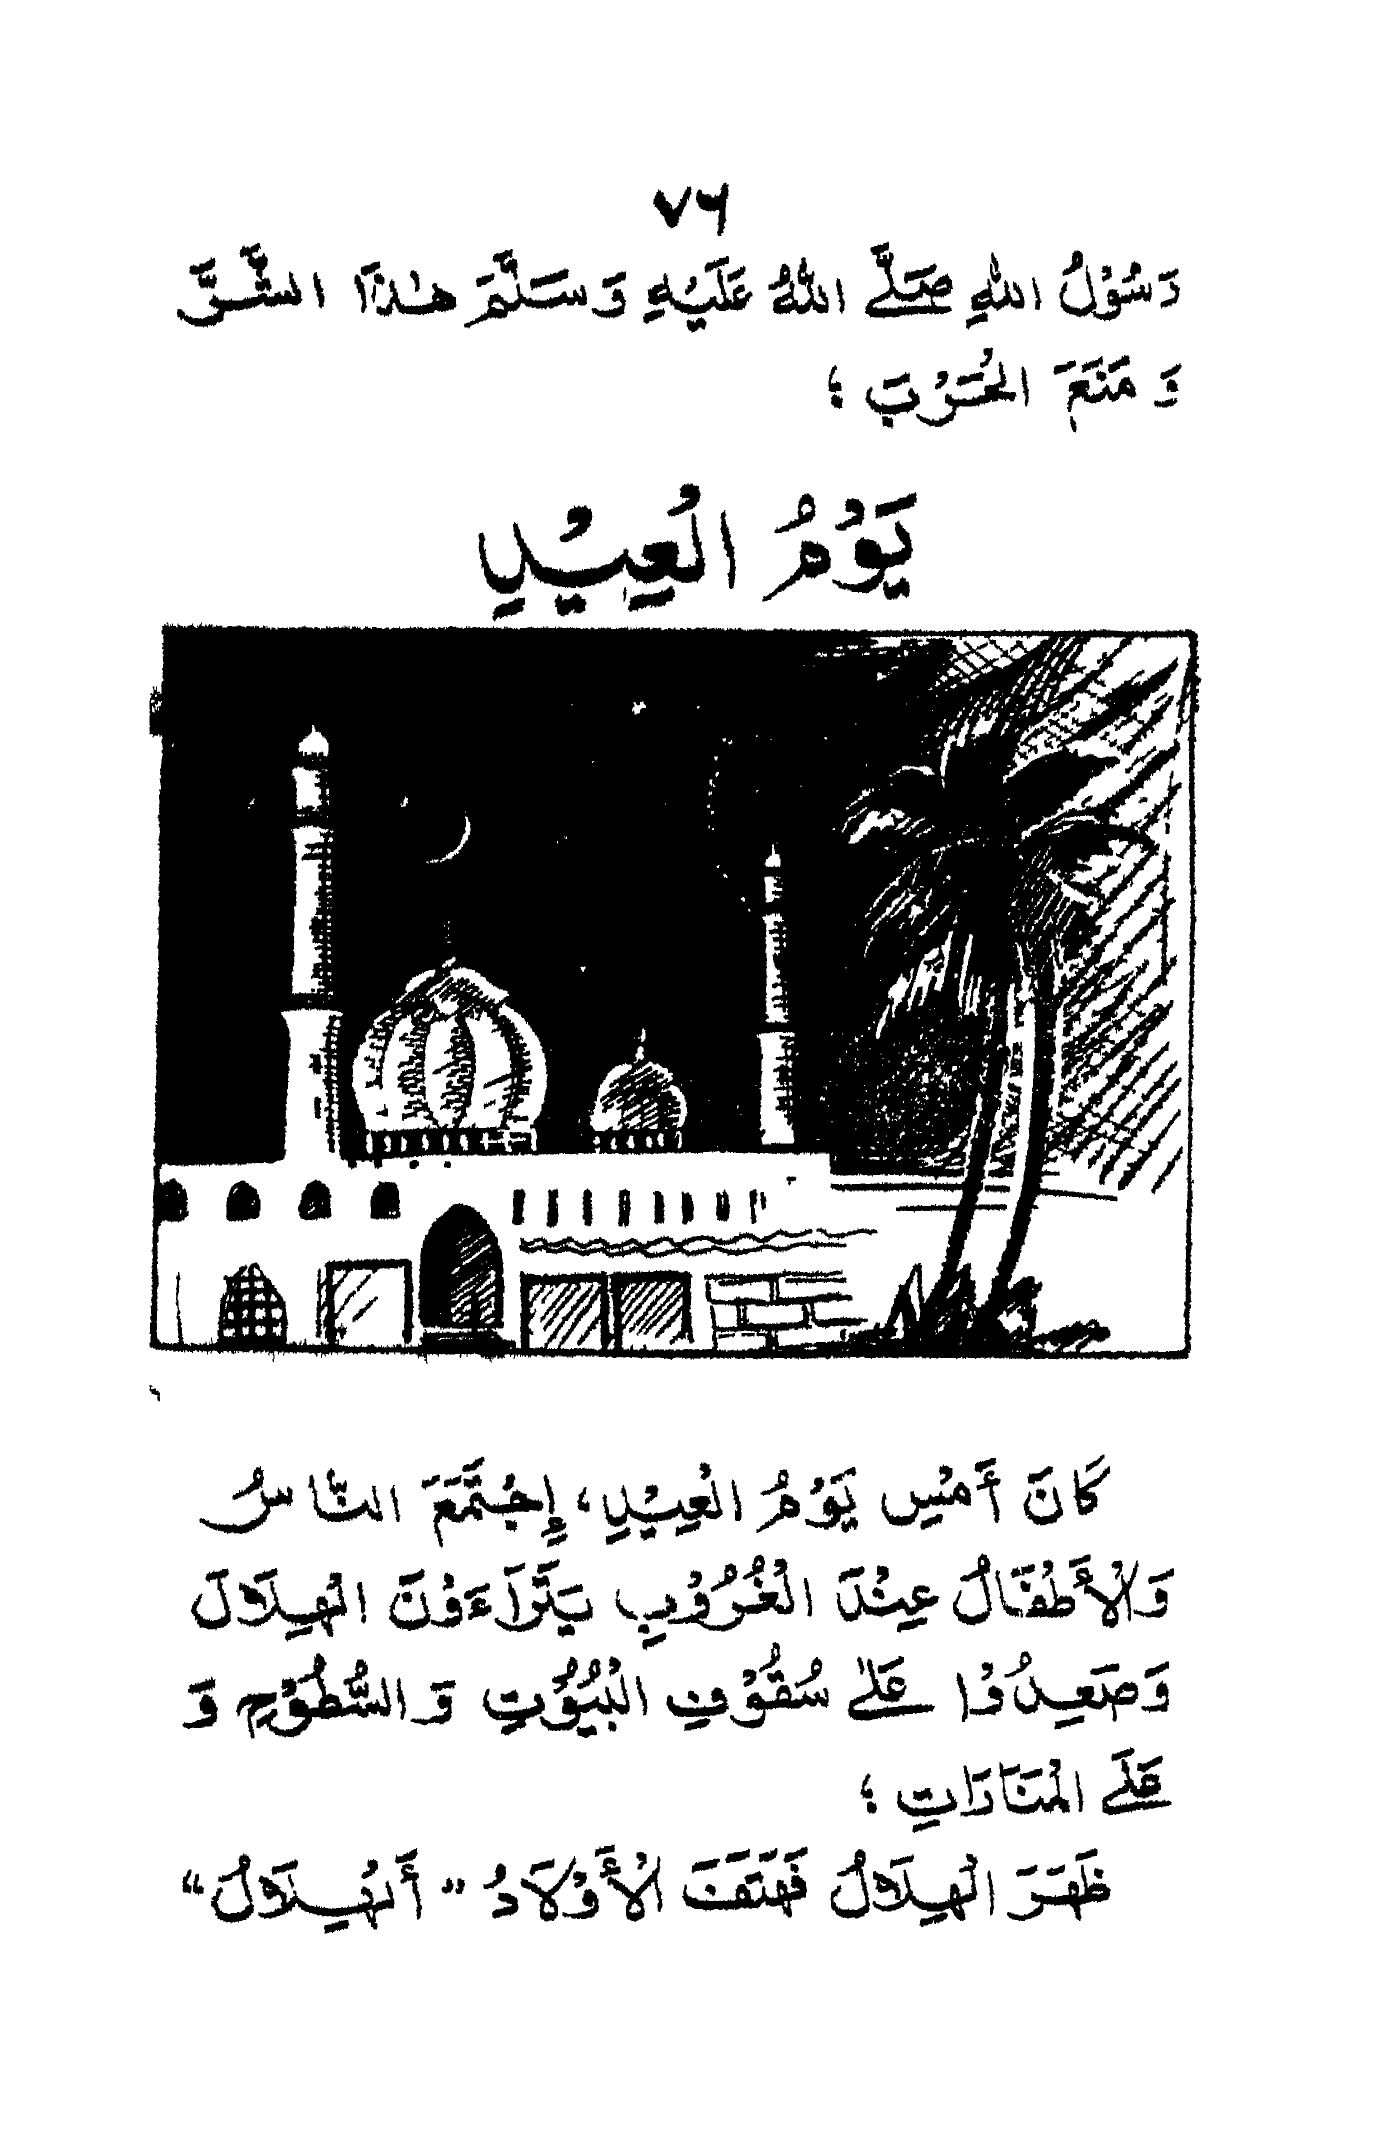 ٧٦
رَسُوْلُ اللهِ صَلَّے اللهُ عَلَيْهِ وَ سَلَّمَ هٰذَا الشَّرَّ
وَ مَنَعَ الْحَرْبَ ؛
يَوْمُ الْعِيْدِ
كَانَ أَمْسِ يَوْمُ الْعِيْدِ، إِجْتَمَعَ النَّاسُ
وَالْأَطْفَالُ عِنْدَ الْغُرُوْبِ يَتَرَاءَوْنَ الْهِلَالَ
وَصَعِدُوْا عَلٰى سُقُوْفِ الْبُيُوْتِ وَ السُّطُوْحِ وَ
عَلَے الْمَنَارَاتِ ؛
ظَهَرَ الْهِلَالُ فَهَتَفَ الْأَوْلَادُ “ أَلْهِلَالُ “